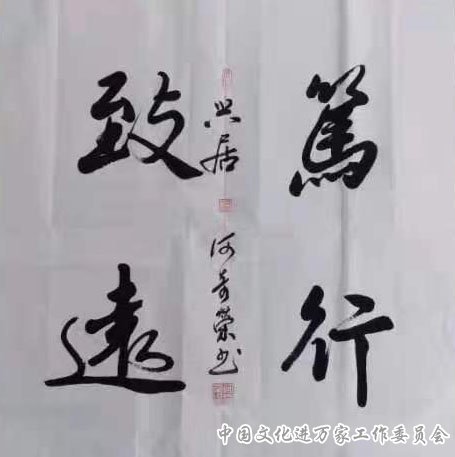 篤行
致遠
居
何奇榮书
中国文化进万家工作委员会